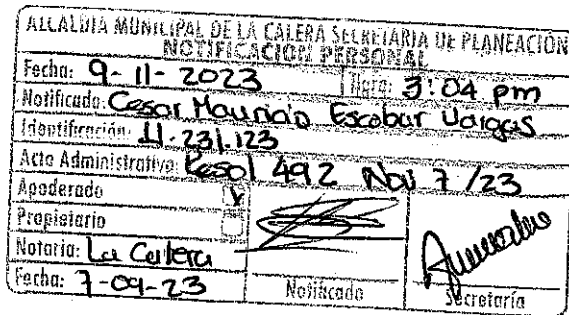 ALCALDIA MUNICIPAL DE LA CALERA SECRETARIA DE PLANEACIÓN
NOTIFICACION PERSONAL
Fecha: 9-11-2023 Hora: 3:04 pm
Notificado: Cesar Mauricio Escobar Vargas
Identificación: 11.231.123
Acto Administrativo: Resol 492 Nov 7/23
Apoderado
Propietario
Notaria: La Calera
Fecha: 7-09-23
Notificado
Secretaría